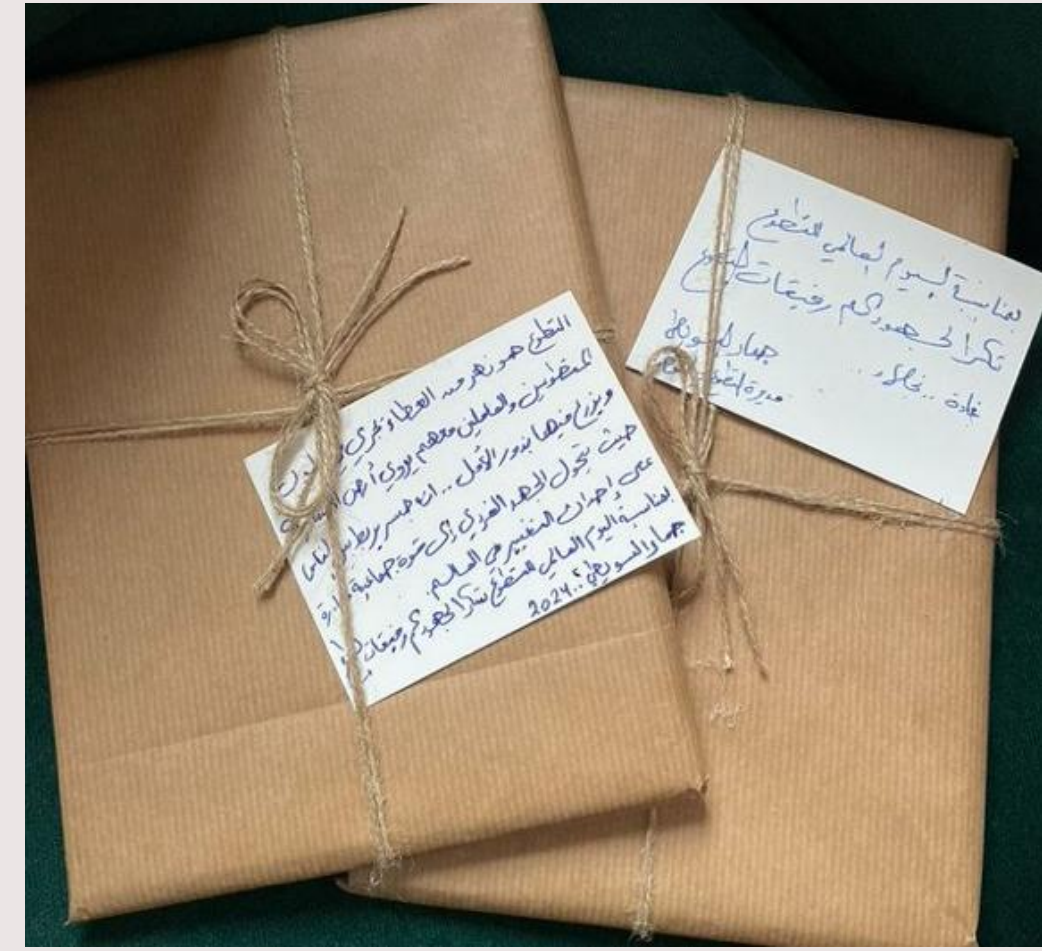 التطوع هو نهر من العطاء يجري في
المتطوعين والعاملين معهم يروي أرض
ويزرع فيها بذور الأمل .. انه جسر يربط بين الناس
حيث يتحول الجهد الفردي إلى قوة جماعية
على إحداث التغيير في العالم .
بمناسبة اليوم العالمي للتطوع شكرا لجهودكم رفيقات
جهاد السويطي .. 2024
بمناسبة اليوم العالمي للتطوع
شكرا لجهودكم رفيقات التطوع
غادة ..
جهاد السويطي
مديرة